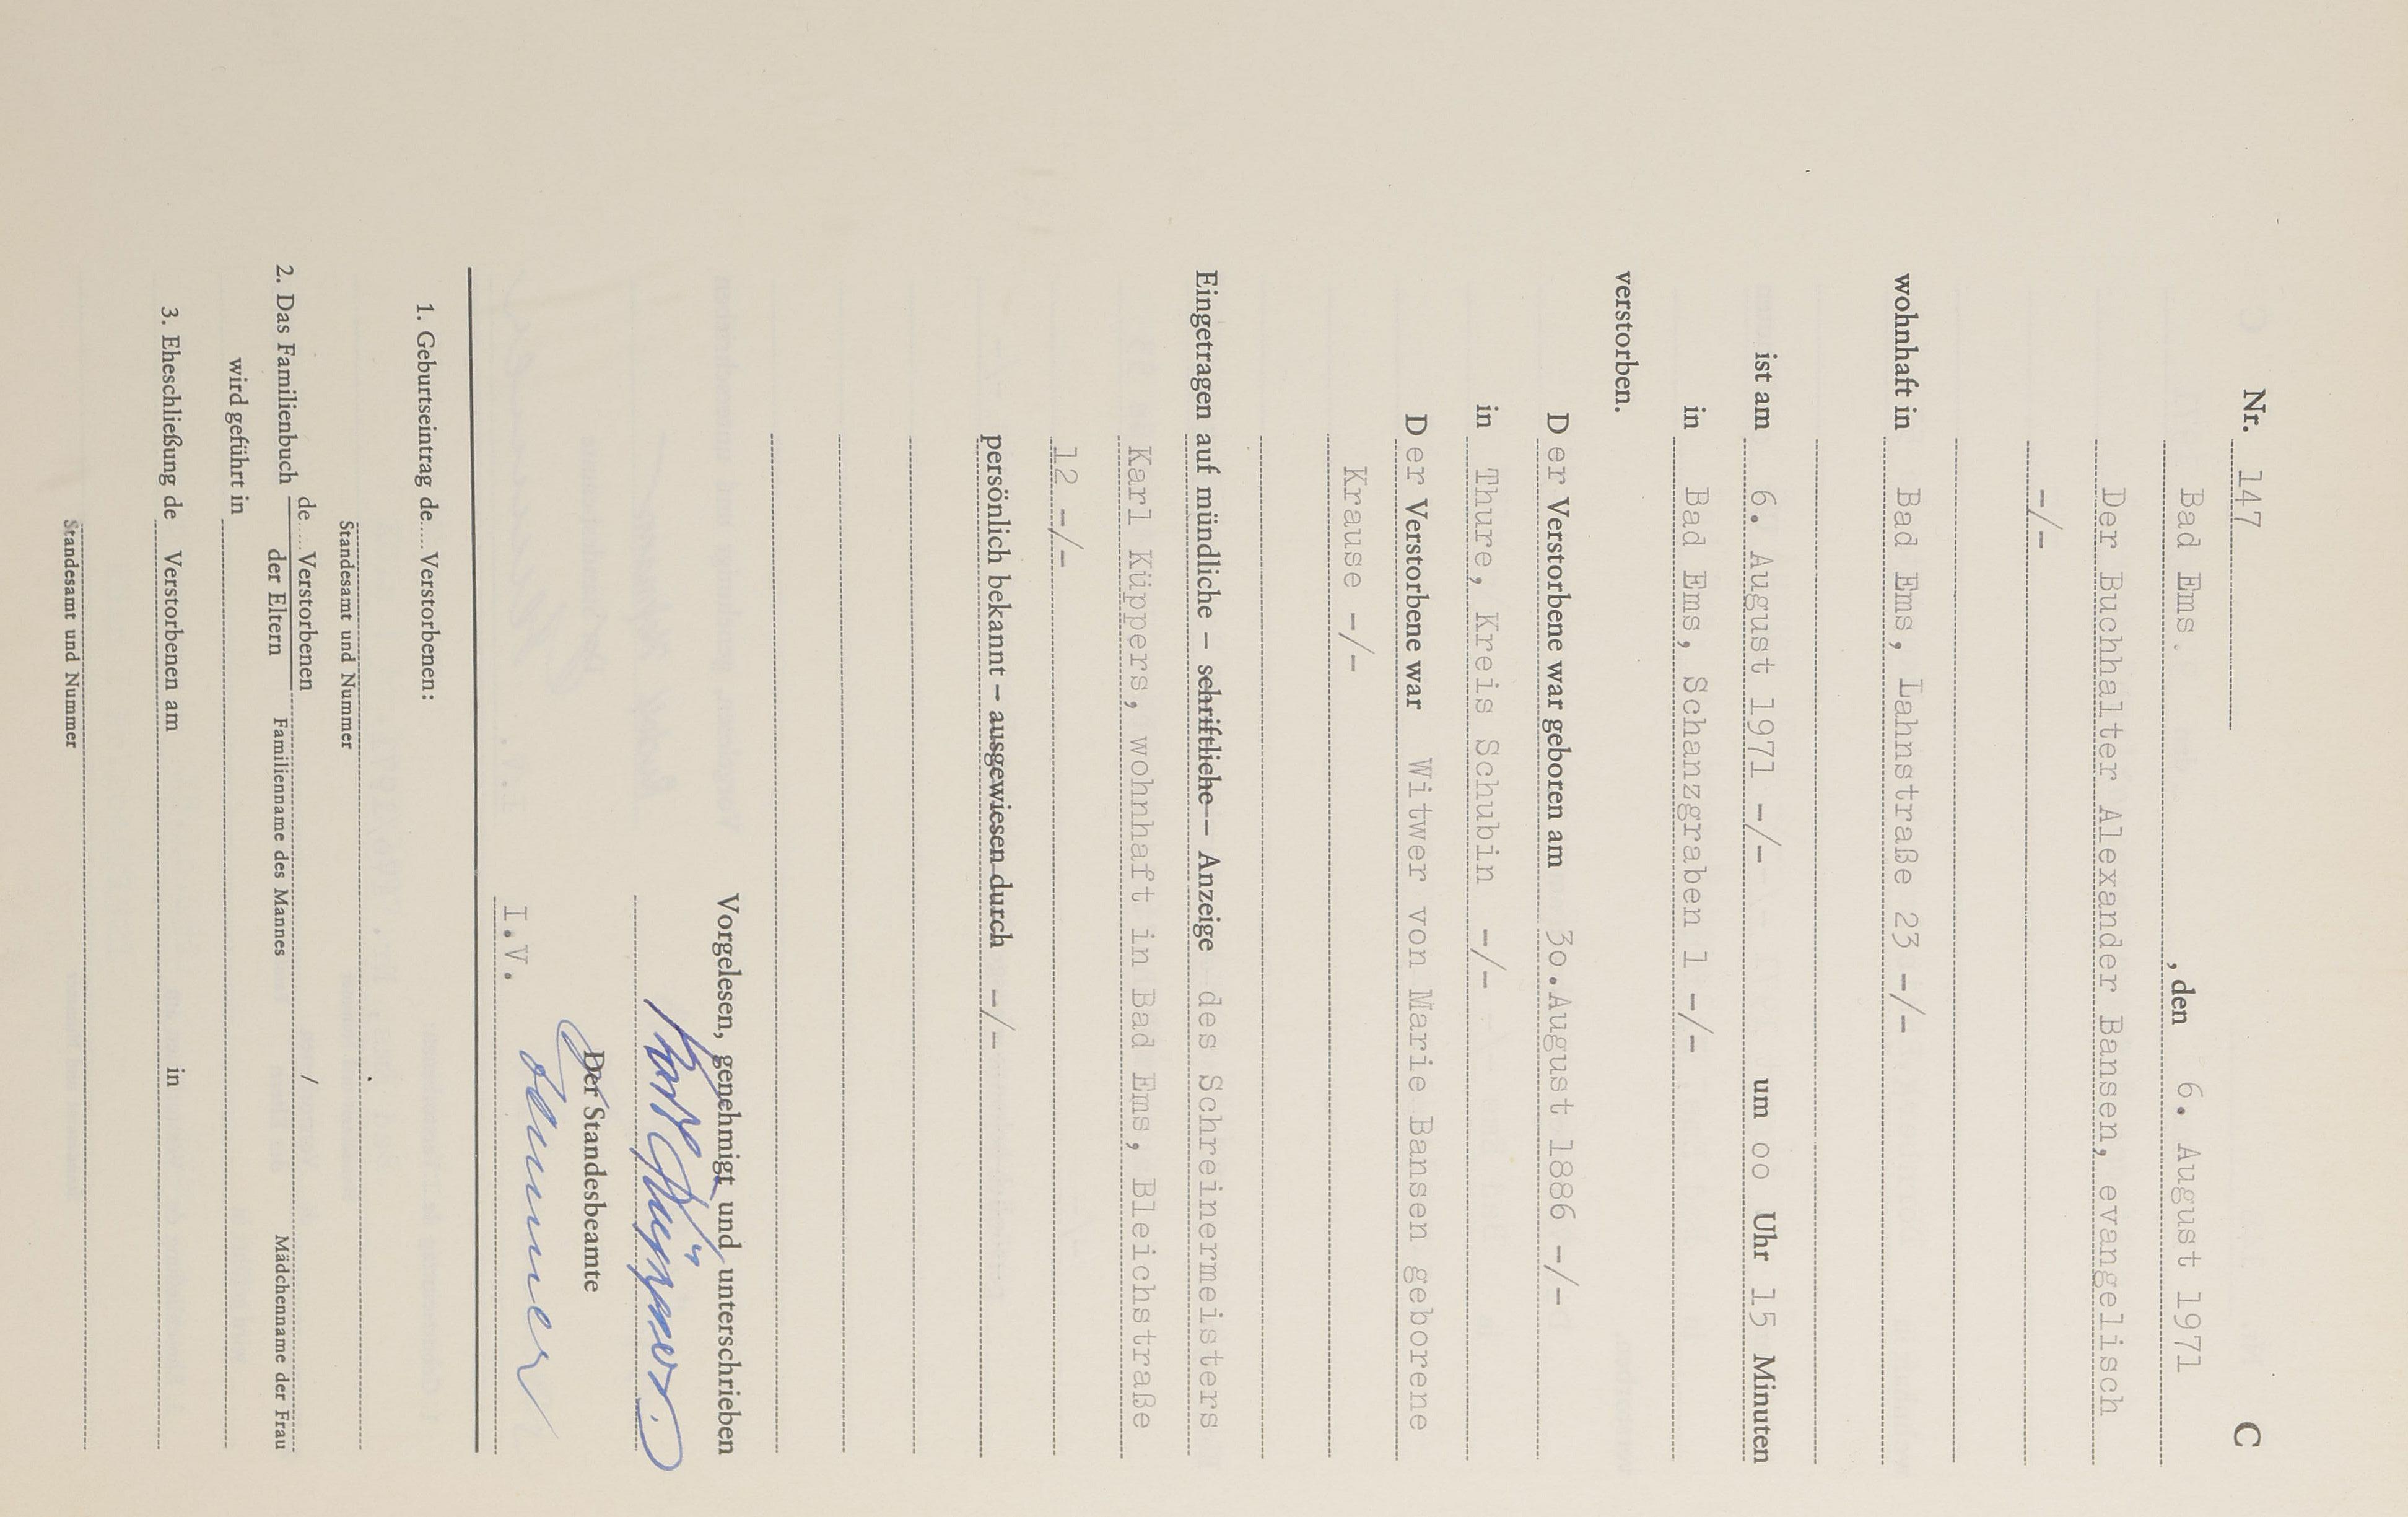 C
Nr. 147
Bad Ems. , den 6. August 1971
Der Buchhalter Alexander Bansen, evangelisch
-/-
wohnhaft in Bad Ems, Lahnstraße 23 -/-
ist am 6. August 1971 -/- um oo Uhr 15 Minuten
in Bad Ems, Schanzgraben 1 -/-
verstorben.
D er Verstorbene war geboren am 3o.August 1886 -/-
in Thure, Kreis Schubin -/-
D er Verstorbene war Witwer von Marie Bansen geborene
Krause -/-
Eingetragen auf mündliche – schriftliche – Anzeige des Schreinermeisters
Karl Küppers, wohnhaft in Bad Ems, Bleichstraße
12 -/-
persönlich bekannt – ausgewiesen durch -/-
Vorgelesen, genehmigt und unterschrieben
Karl Küppers.
Der Standesbeamte
I.V.
1. Geburtseintrag de.... Verstorbenen:
Standesamt und Nummer
2. Das Familienbuch de.... Verstorbenen /
der Eltern Familienname des Mannes Mädchenname der Frau
wird geführt in
3. Eheschließung de Verstorbenen am in
Standesamt und Nummer